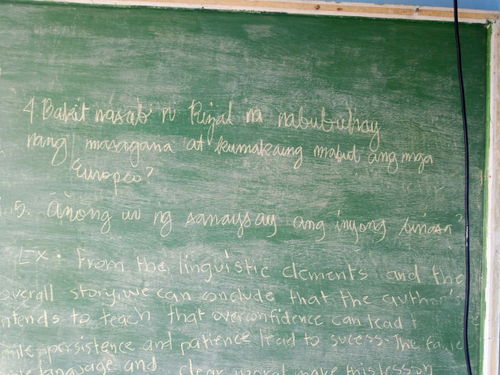 4 Bakit nasabi ni Rizal na nabubuhay
nang masagana at kumakaing mabuti ang mga
Europeo?
5. Anong uri ng sanaysay ang inyong binasa?
Ex. From the linguistic elements and the
overall story, we can conclude that the author
intends to teach that overconfidence can lead
persistence and patience lead to success. The
language and clear moral make this lesson